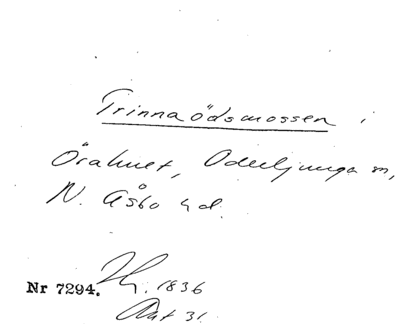 Trinnaödsmossen i
Örahult, Oderljunga sn,
N. Åsbo hd.
Nr 7294. 1836
Akt 31.